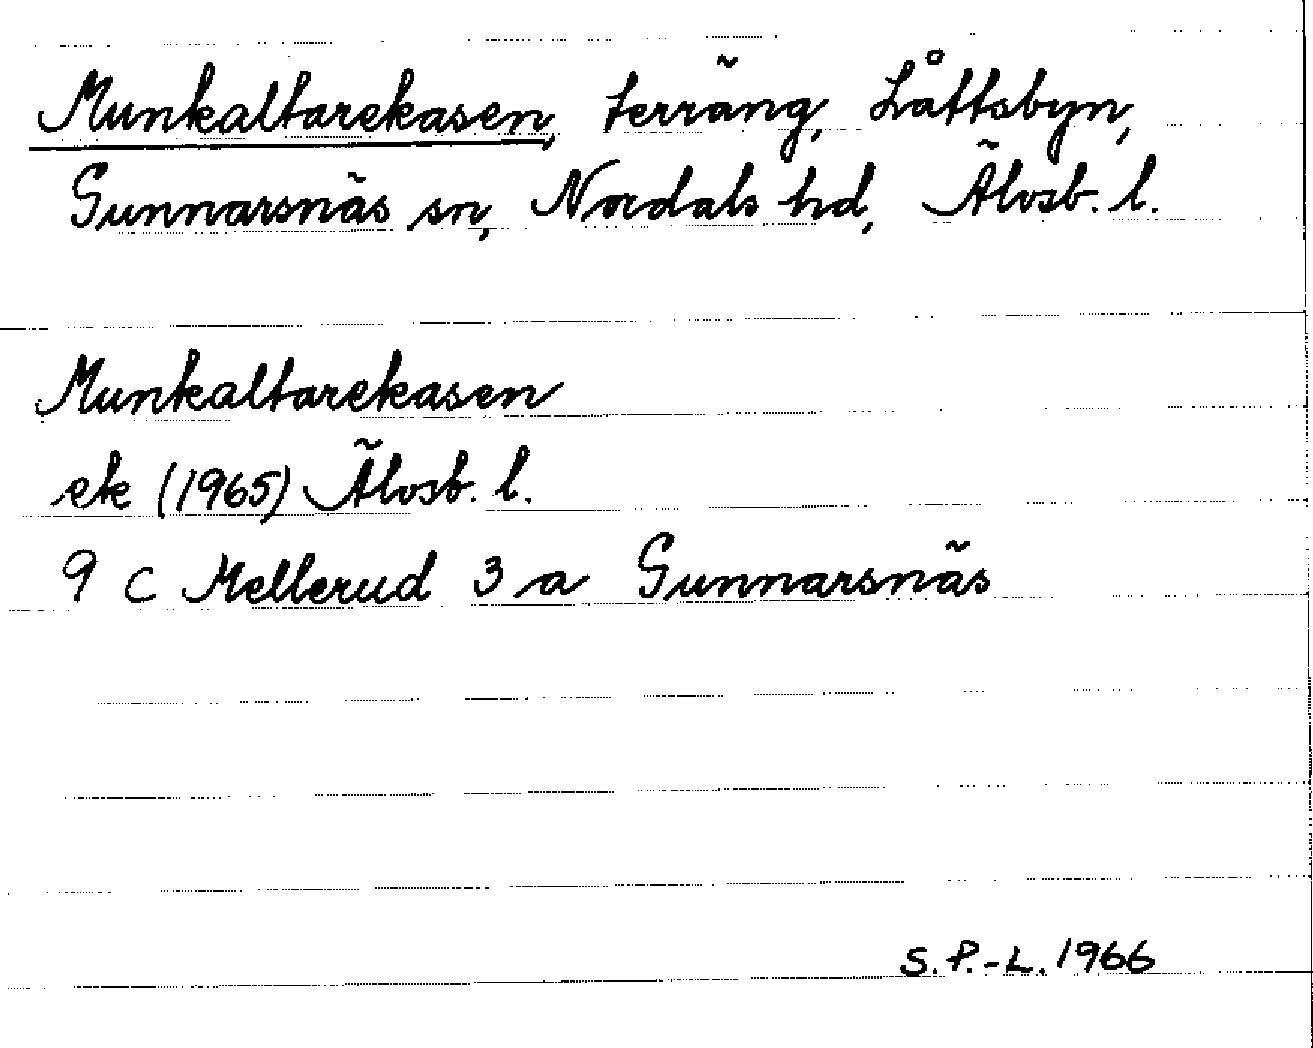 Munkaltarekasen, terräng, Låttsbyn,
Gunnarsnäs sn, Nordals hd, Älvsb. l.
Munkaltarekasen
ek (1965) Älvsb. l.
9 C Mellerud 3 a Gunnarsnäs
S. P.-L. 1966